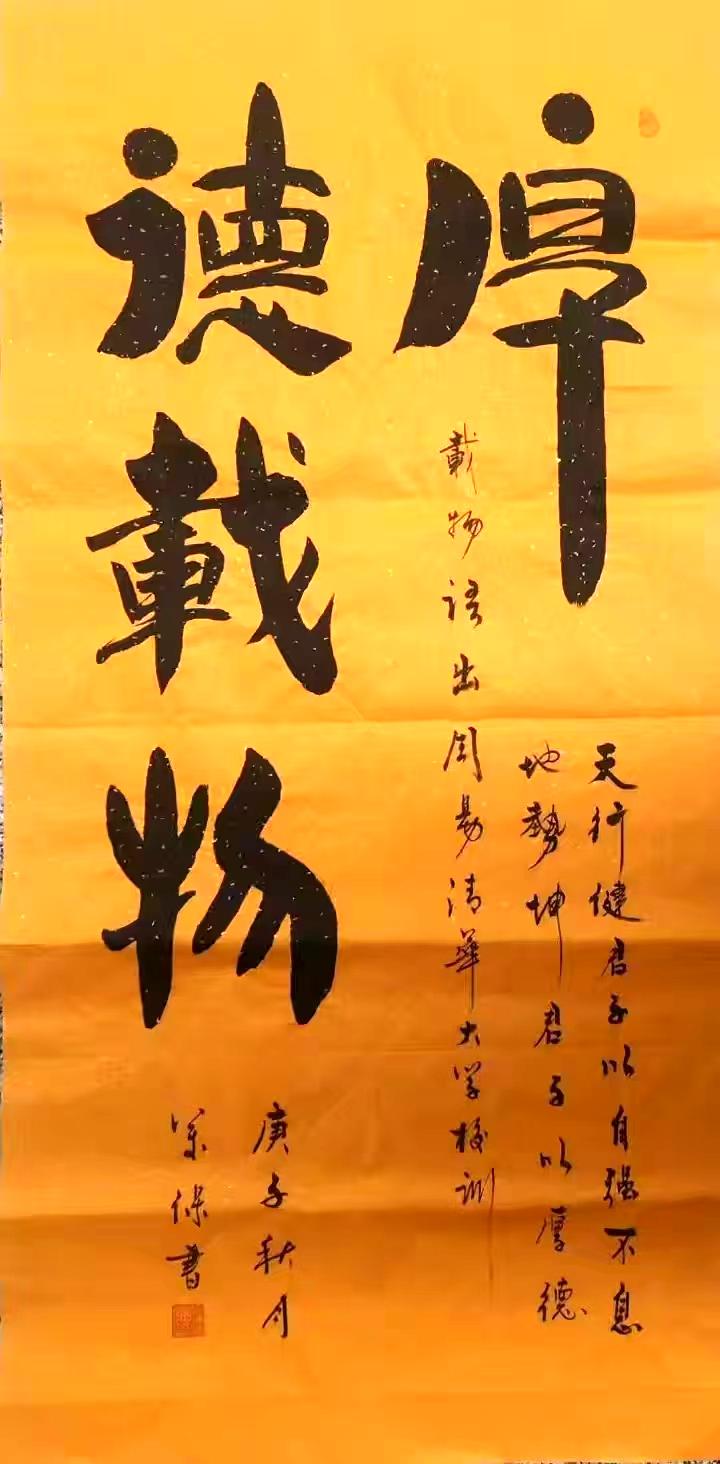 厚
德載物
天行健君子以自强不息
地勢坤君子以厚德
載物語出周易清華大学校训
庚子秋月
保書